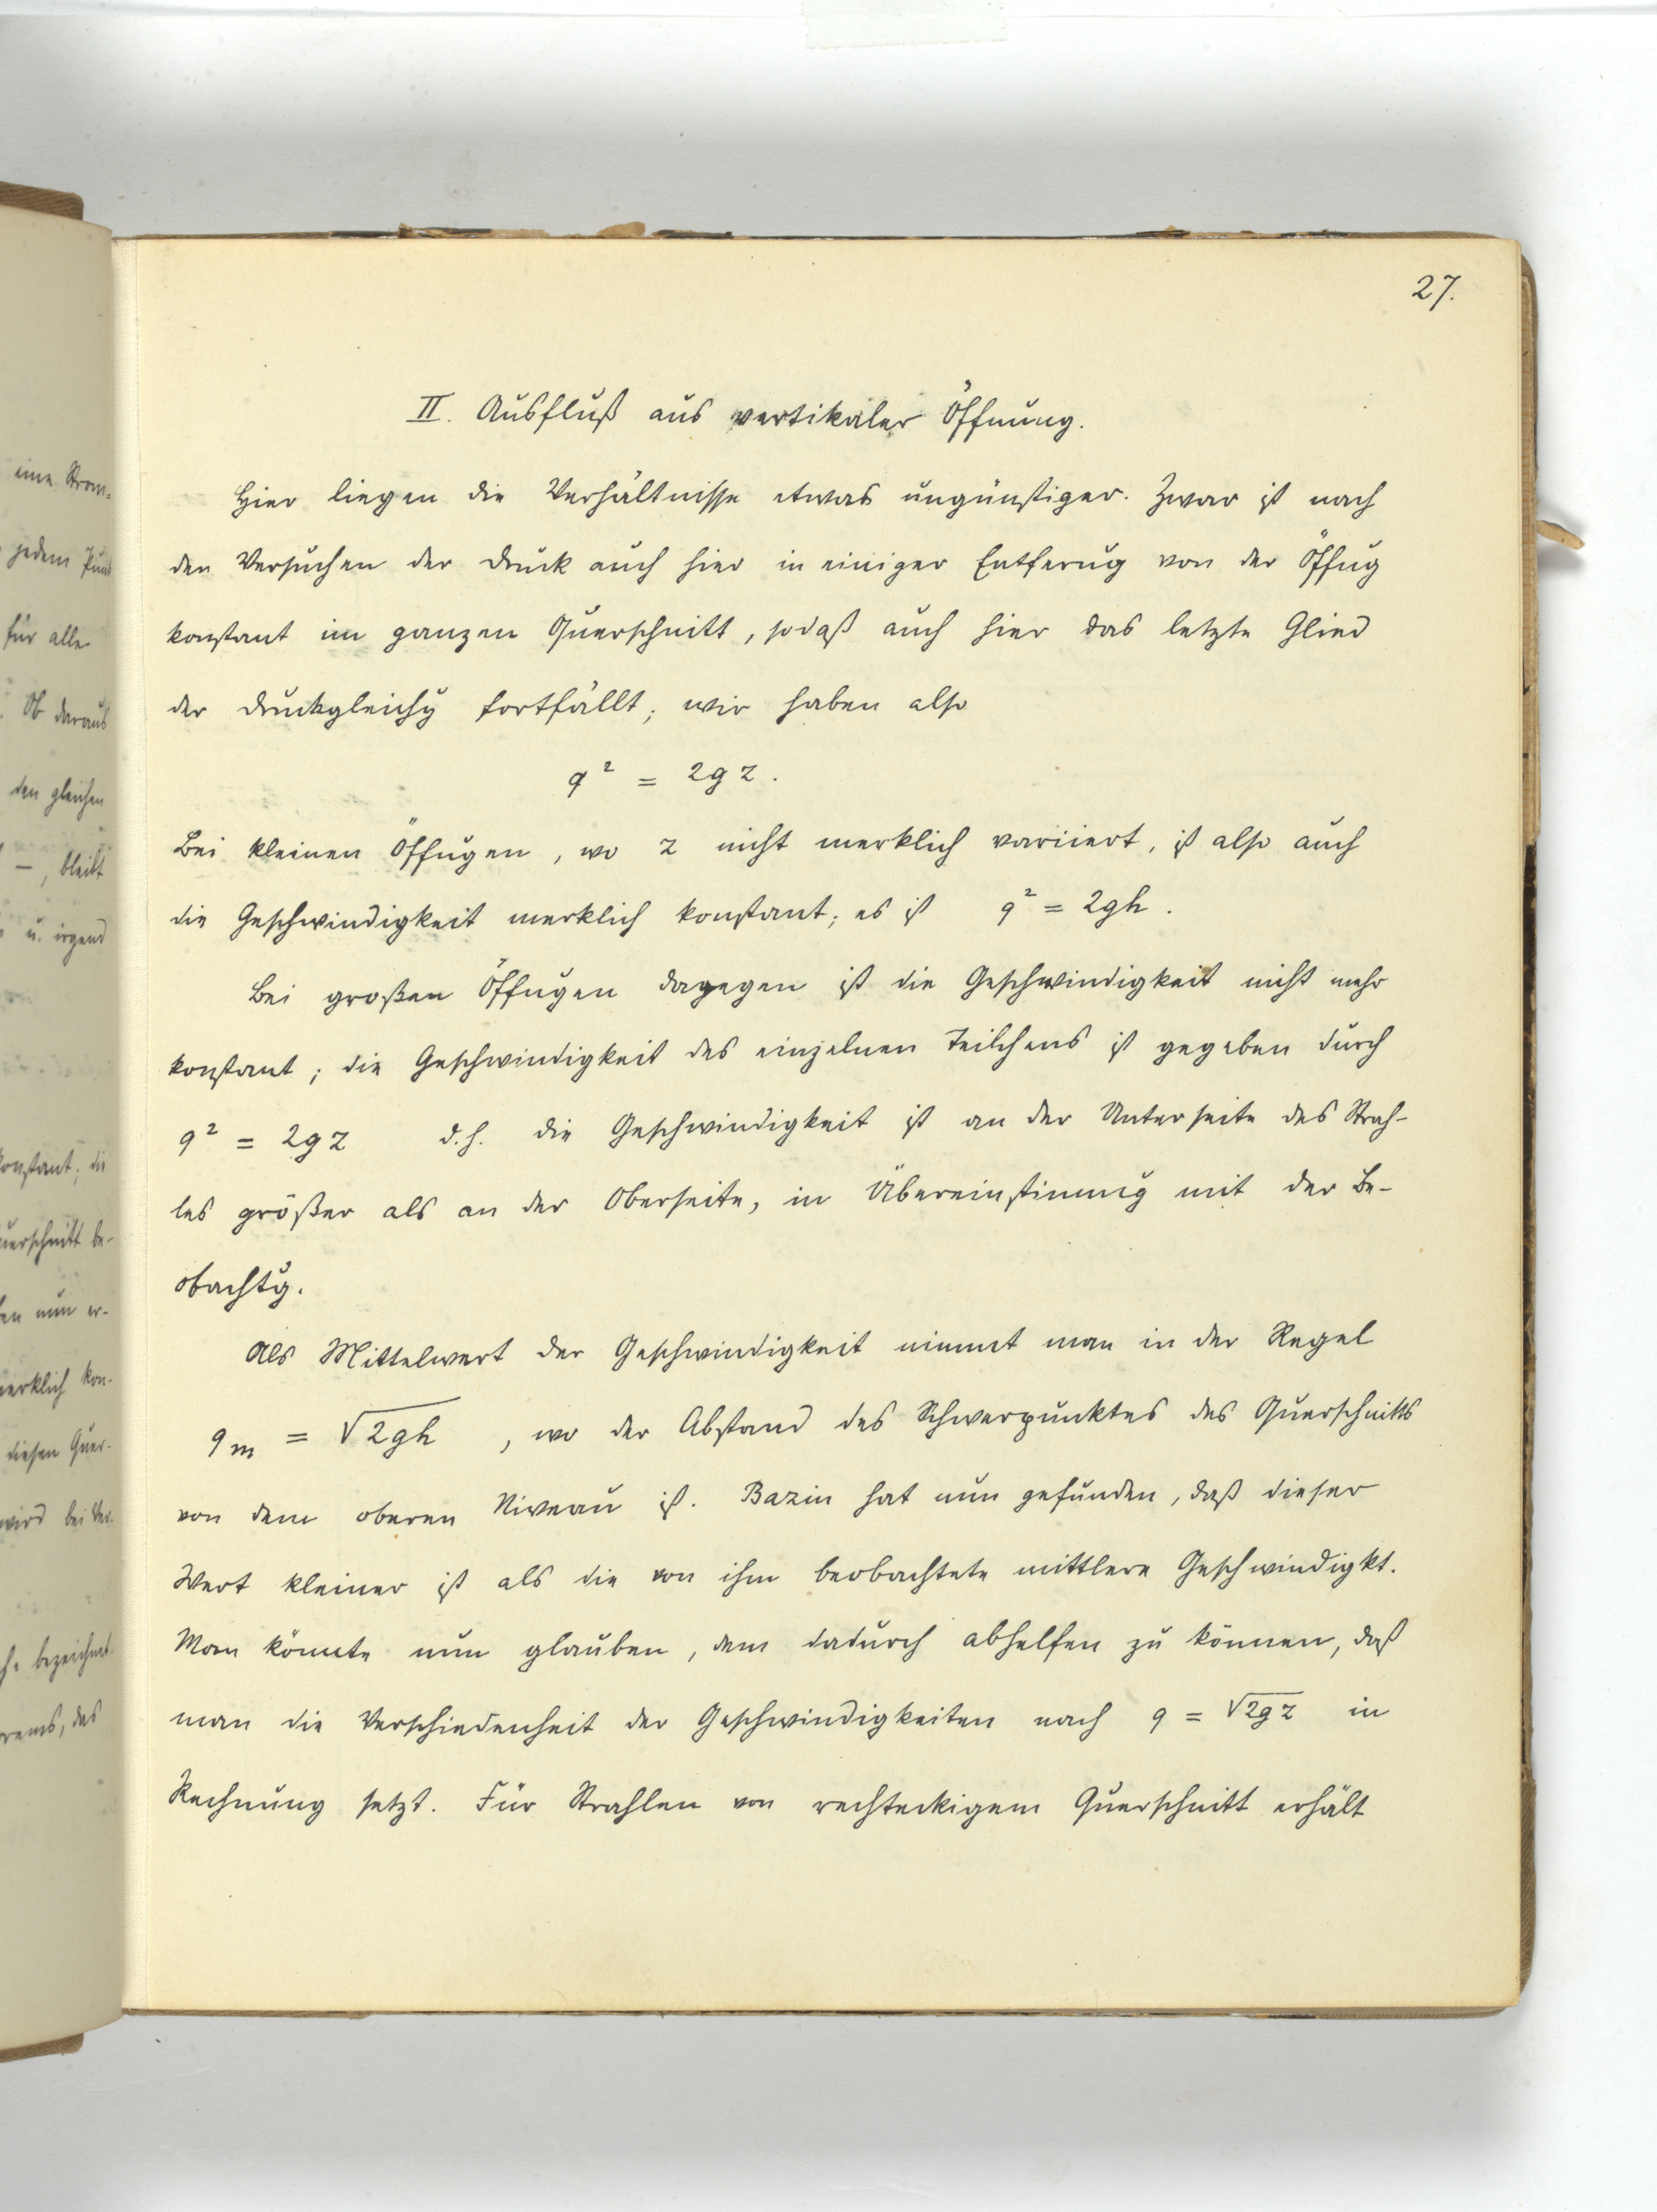 27.
II. Ausfluß aus vertikaler Öffnung.
Hier liegen die Verhältnisse etwas ungünstiger. Zwar ist nach
den Versuchen der Druck auch hier in einiger Entferug von der Öffug
konstant im ganzen Querschnitt, sodaß auch hier das letzte Glied
der Druckgleichg fortfällt; wir haben also
q² = 2gz.
Bei kleinen Öffugen, wo z nicht merklich variiert, ist also auch
die Geschwindigkeit merklich konstant; es ist q² = 2gh.
Bei großen Öffugen dagegen ist die Geschwindigkeit nicht mehr
konstant; die Geschwindigkeit des einzelnen Teilchens ist gegeben durch
q² = 2gz d.h. die Geschwindigkeit ist an der Unterseite des Strah-
les größer als an der Oberseite, in Übereinstimmg mit der Be-
obachtg.
Als Mittelwert der Geschwindigkeit nimmt man in der Regel
qm = √2gh, wo der Abstand des Schwerpunktes des Querschnitts
von dem oberen Niveau ist. Bazin hat nun gefunden, daß dieser
Wert kleiner ist als die von ihm beobachtete mittlere Geschwindigkt.
Man könnte nun glauben, dem dadurch abhelfen zu können, daß
man die Verschiedenheit der Geschwindigkeiten nach q = √2gz in
Rechnung setzt. Für Strahlen von rechteckigem Querschnitt erhält
eine Strom-
jedem Punk
für alle
. Ob daraus
den gleichen
–, bleibt
u. irgend
konstant; die
uerschnitt be-
en nun er-
merklich kon-
diesen Quer-
wird bei Ver-
bezeichnet
rems, das